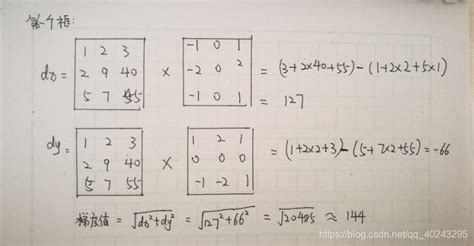 第一个框:
1 2 3 -1 0 1
dx= 2 9 40 × -2 0 2 = (3+2×40+55)-(1+2×2+5×1)
5 7 55 -1 0 1 = 127
1 2 3 1 2 1
dy= 2 9 40 × 0 0 0 = (1+2×2+3)-(5+7×2+55)=-66
5 7 55 -1 -2 1
梯度值 = √dx²+dy² = √127²+66² = √20485 ≈ 144
https://blog.csdn.net/qq_40243295